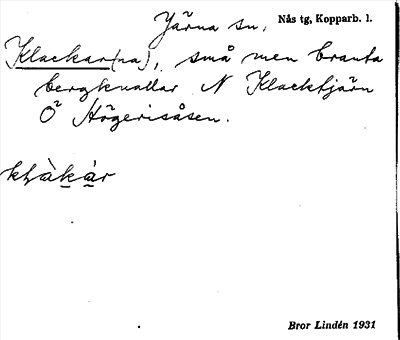 Järna sn. Nås tg, Kopparb. l.
Klackar(na), små men branta
bergknallar N Klacktjärn
Ö Högerisåsen.
Bror Lindén 1931